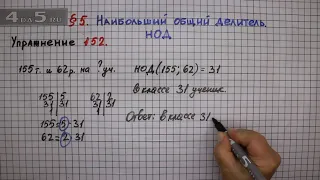 4DS.RU
§5. Наибольший общий делитель.
НОД
Упражнение 152.
155т. и 62р. на ? уч.
НОД(155; 62) = 31
В классе 31 ученик.
155 5 62 2
31 31 31 31
Ответ: в классе 31
155=5·31
62=2·31